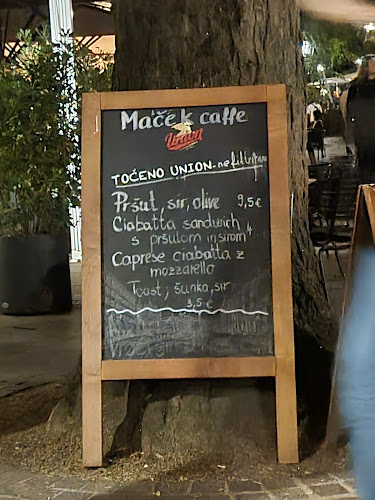 Maček caffe
Union
TOČENO UNION-nefiltrirano
Pršut, sir, olive 9,5€
Ciabatta sandwich
s pršutom in sirom
Caprese ciabatta z
mozzarello
Toast, šunka, sir
3,5€